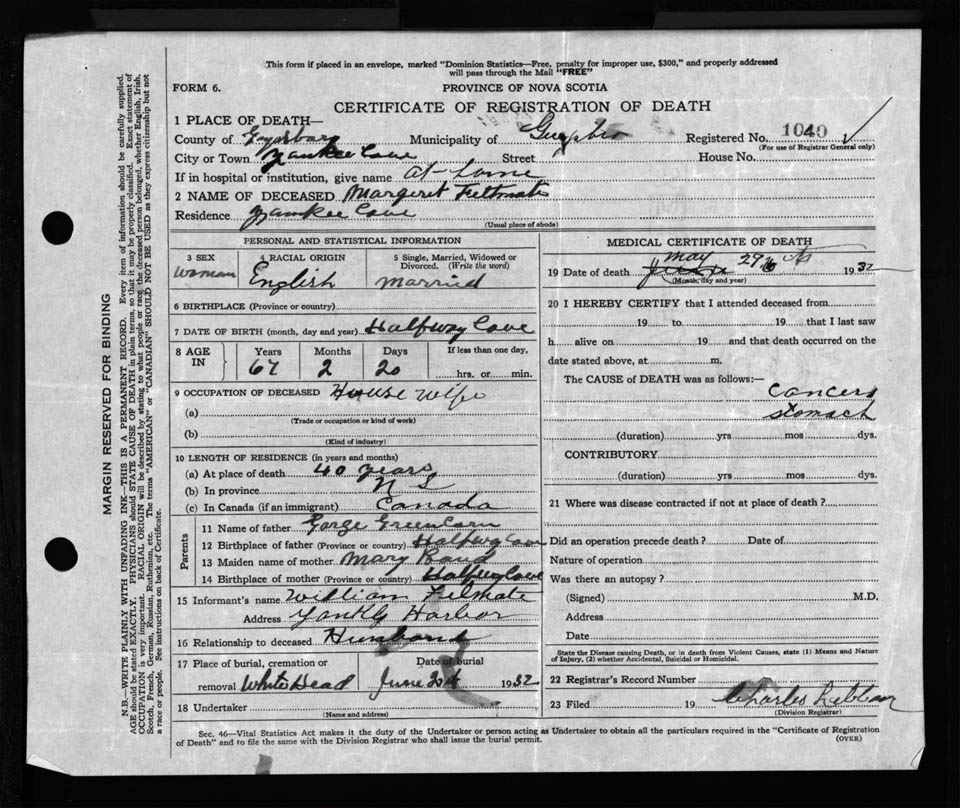 This form if placed in an envelope, marked "Dominion Statistics—Free, penalty for improper use, $300," and properly addressed
will pass through the Mail "FREE"
FORM 6. PROVINCE OF NOVA SCOTIA
CERTIFICATE OF REGISTRATION OF DEATH
1 PLACE OF DEATH—
County of Municipality of Registered No. 1040
(For use of Registrar General only)
City or Town Yankee Cove Street House No.
If in hospital or institution, give name at home
2 NAME OF DECEASED Margerit Feltmate
Residence Yankee Cove
(Usual place of abode)
PERSONAL AND STATISTICAL INFORMATION
3 SEX 4 RACIAL ORIGIN 5 Single, Married, Widowed or
Divorced. (Write the word)
Woman English Married
6 BIRTHPLACE (Province or country)
7 DATE OF BIRTH (month, day and year) Halfway Cove
8 AGE IN Years Months Days If less than one day,
67 2 20 hrs. or min.
9 OCCUPATION OF DECEASED House wife
(a)
(Trade or occupation or kind of work)
(b)
(Kind of industry)
10 LENGTH OF RESIDENCE (in years and months)
(a) At place of death 40 years
(b) In province N S
(c) In Canada (if an immigrant) Canada
Parents
11 Name of father Gorge Greencorn
12 Birthplace of father (Province or country) Halfwy Cove
13 Maiden name of mother Mary
14 Birthplace of mother (Province or country) Halfwy Cove
15 Informant's name William
Address Harbor
16 Relationship to deceased Husband
17 Place of burial, cremation or Date of burial
removal White Head June 1932
18 Undertaker
(Name and address)
MEDICAL CERTIFICATE OF DEATH
19 Date of death May 29 1932
(Month, day and year)
20 I HEREBY CERTIFY that I attended deceased from
19 to 19 that I last saw
h alive on 19 and that death occurred on the
date stated above, at m.
The CAUSE of DEATH was as follows:—
Cancers
stomach
(duration) yrs mos dys.
CONTRIBUTORY
(duration) yrs. mos. dys.
21 Where was disease contracted if not at place of death?
Did an operation precede death? Date of
Nature of operation
Was there an autopsy?
(Signed) M.D.
Address
Date
State the Disease causing Death, or in death from Violent Causes, state (1) Means and Nature
of Injury, (2) whether Accidental, Suicidal or Homicidal.
22 Registrar's Record Number
23 Filed 19 Charles
(Division Registrar)
Sec. 46—Vital Statistics Act makes it the duty of the Undertaker or person acting as Undertaker to obtain all the particulars required in the "Certificate of Registration
of Death" and to file the same with the Division Registrar who shall issue the burial permit. (OVER)
MARGIN RESERVED FOR BINDING
N.B.—WRITE PLAINLY WITH UNFADING INK—THIS IS A PERMANENT RECORD. Every item of information should be carefully supplied.
AGE should be stated EXACTLY. PHYSICIANS should STATE CAUSE OF DEATH in plain terms, so that it may be properly classified. Exact statement of
OCCUPATION is very important. RACIAL ORIGIN will be described by stating to what people or race the deceased person belonged, whether English, Irish,
Scotch, French, German, Russian, Ruthenian, etc. The terms "AMERICAN" or "CANADIAN" SHOULD NOT BE USED as they express citizenship but not
a race or people. See instructions on back of Certificate.